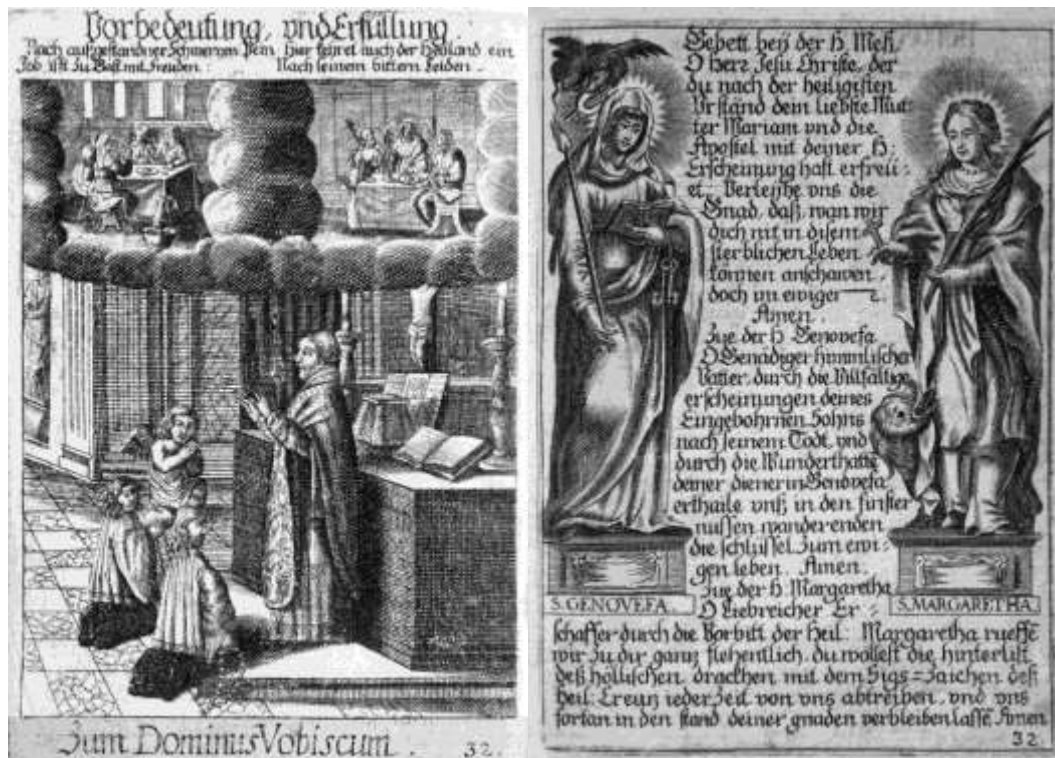 Vorbedeutung, vnd Erfüllung
Nach aufgestandner Schmerzen Pein
Job ißt zu Gast mit Freuden:
hier kehret auch der Heiland ein
Nach seinem bittern Leiden.
Zum Dominus Vobiscum.
32.
Gebett beÿ der H. Meß.
O Herr Jesu Christe, der
du nach der heiligisten
Vrstand dem liebste Mut=
ter Mariam vnd die
Apostel mit deiner H:
Erscheinung hast erfreü=
et. Verleyhe vns die
Gnad, daß, wan wir
dich nit in disem
sterblichen Leben
können anschawen,
doch im ewiger
Amen.
Zue der H Genovefa
O Genädiger himmlischer
Vatter, durch die Villfaltige
erscheinungen deines
Eingebohrnen Sohns
nach seinem Todt, vnd
durch die Wunderthatte
deiner dienerin Genovefa
erthaile vnß in den finster
nussen wanderenden
die schlüssel zum ewi=
gen leben. Amen.
Zue der H. Margaretha
O Liebreicher Er=
S. GENOVEFA.
S. MARGARETHA.
schaffer durch die Vorbitt der Heil: Margaretha rueffe
wir zu dir ganz flehentlich, du wollest die hinterlist
deß höllischen drachen mit dem Sigs=Zaichen deß
heil. Creuz ieder Zeit von vns abtreiben, vnd vns
fortan in den stand deiner gnaden verbleiben lasse Amen
32.